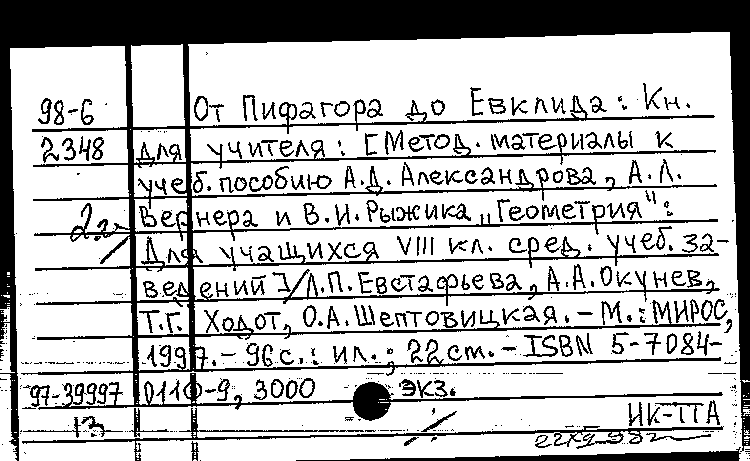 98-6 От Пифагора до Евклида: Кн.
2348 для учителя: [Метод. материалы к
учеб. пособию А.Д. Александрова, А.Л.
2э. Вернера и В.И. Рыжика „Геометрия":
Для учащихся VIII кл. сред. учеб. за-
ведений]/Л.П. Евстафьева, А.А. Окунев,
Т.Г. Ходот, О.А. Шептовицкая. - М.: МИРОС,
1997. - 96с.: ил.; 22см. - ISBN 5-7084-
97-39997 0110-9, 3000 экз.
13 ИК-ТТА